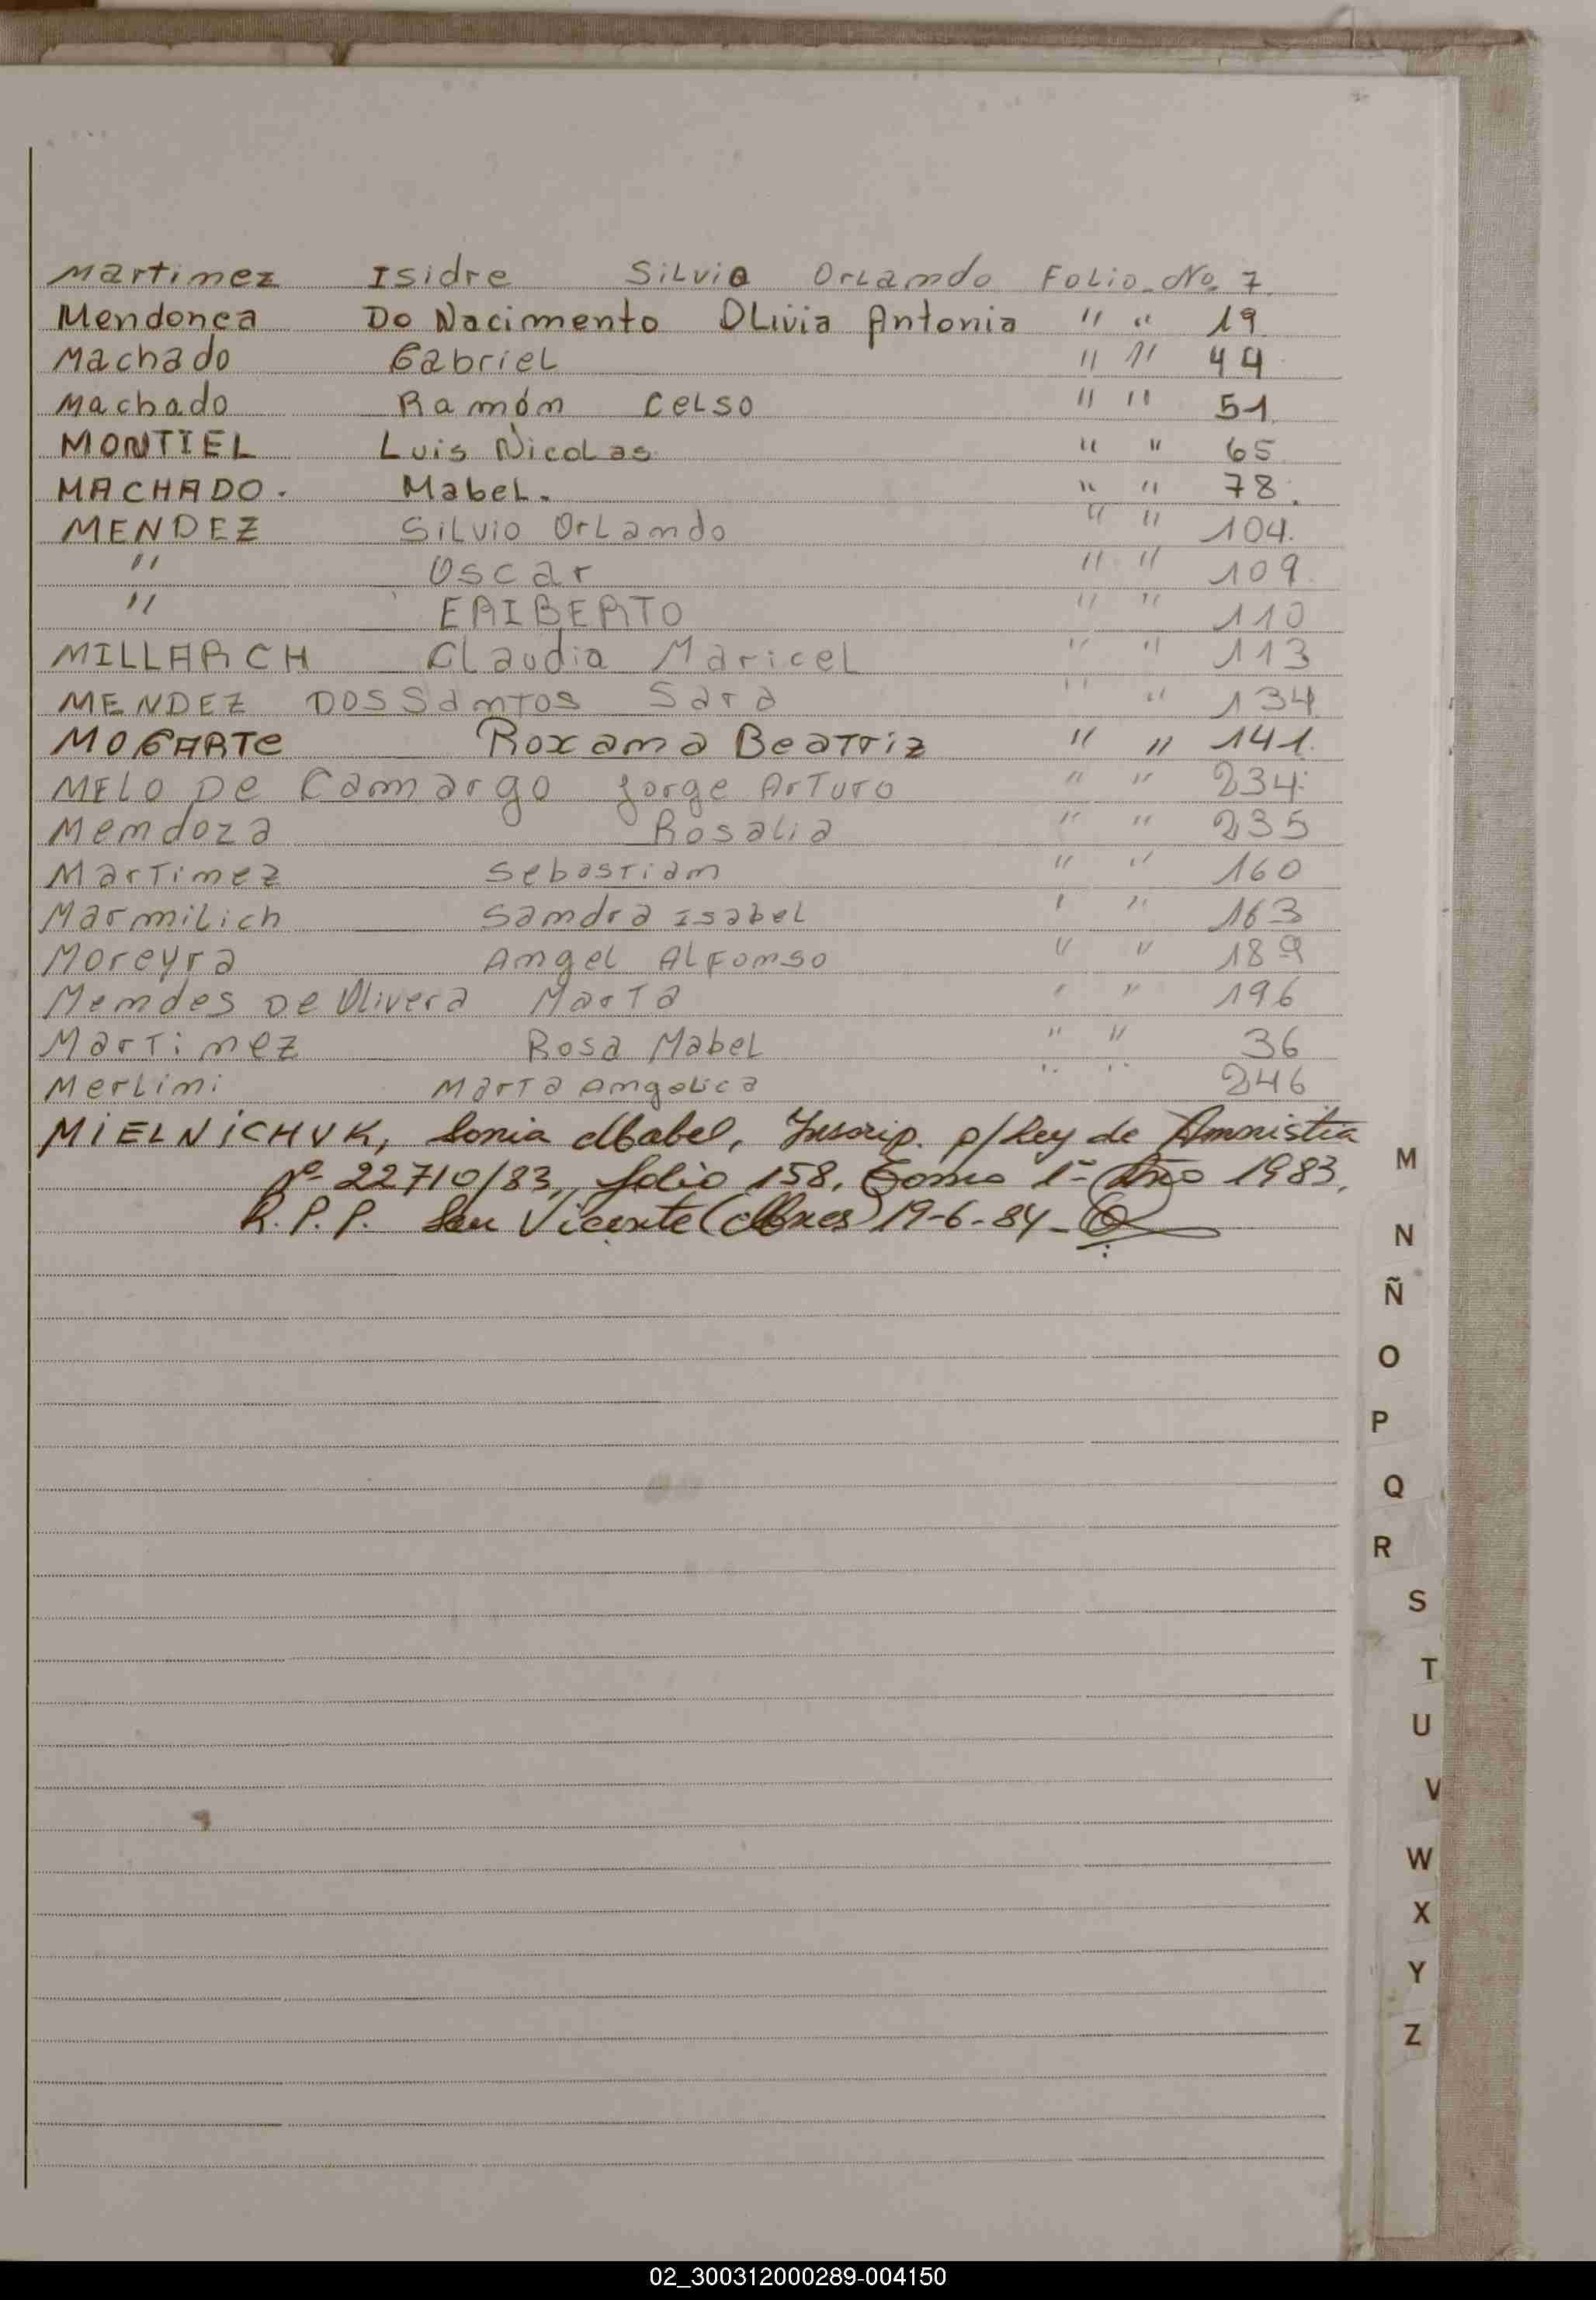 Martinez Isidre Silvio Orlando Folio No. 7
Mendonça Do Nacimento Olivia Antonia " " 19
Machado Gabriel " " 44
Machado Ramón Celso " " 51
MONTIEL Luis Nicolas " " 65
MACHADO. Mabel. " " 78.
MENDEZ Silvio Orlando " " 104.
" Oscar " " 109
" ERIBERTO " " 110
MILLARCH Claudia Maricel " " 113
MENDEZ DOS Santos Sara " " 134
MOGARTE Roxana Beatriz " " 141.
MELO De Camargo Jorge Arturo " " 234.
Mendoza Rosalia " " 235
Martinez Sebastian " " 160
Marmilich Sandra Isabel " " 163
Moreyra Angel Alfonso " " 189
Mendes De Olivera Marta " " 196
Martinez Rosa Mabel " " 36
Merlini Marta Angelica " " 246
MiELNiCHUK, Sonia Mabel, Inscrip. p/Ley de Amnistia
Nº 22710/83, folio 158, Tomo 1º Año 1983,
R.P.P. San Vicente (Mnes) 19-6-84-
M
N
Ñ
O
P
Q
R
S
T
U
V
W
X
Y
Z
02_300312000289-004150